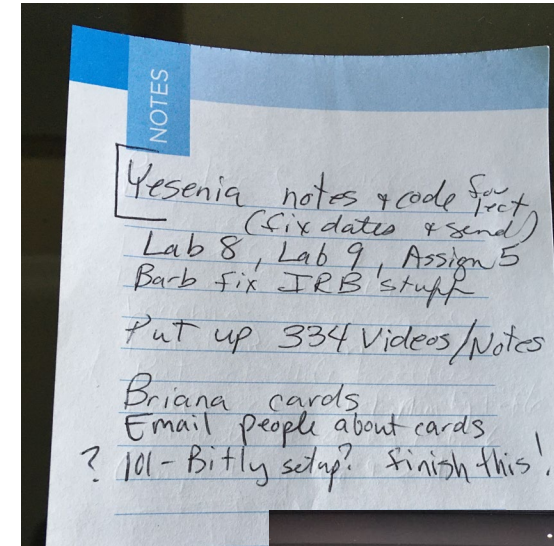 NOTES
Yesenia notes & code for lect
(fix dates & send)
Lab 8, Lab 9, Assign 5
Barb fix IRB stuff
Put up 334 Videos/Notes
Briana cards
Email people about cards
? 101 - Bitly setup? finish this!